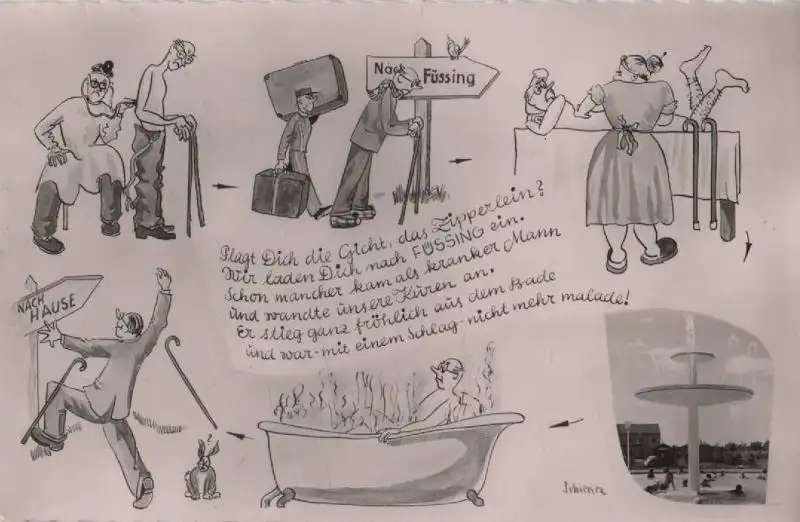 Nach Füssing
Plagt Dich die Gicht, das Zipperlein?
Wir laden Dich nach FÜSSING ein.
Schon mancher kam als kranker Mann
und wandte unsere Kuren an.
Er stieg ganz fröhlich aus dem Bade
und war-mit einem Schlag-nicht mehr malade!
NACH
HAUSE